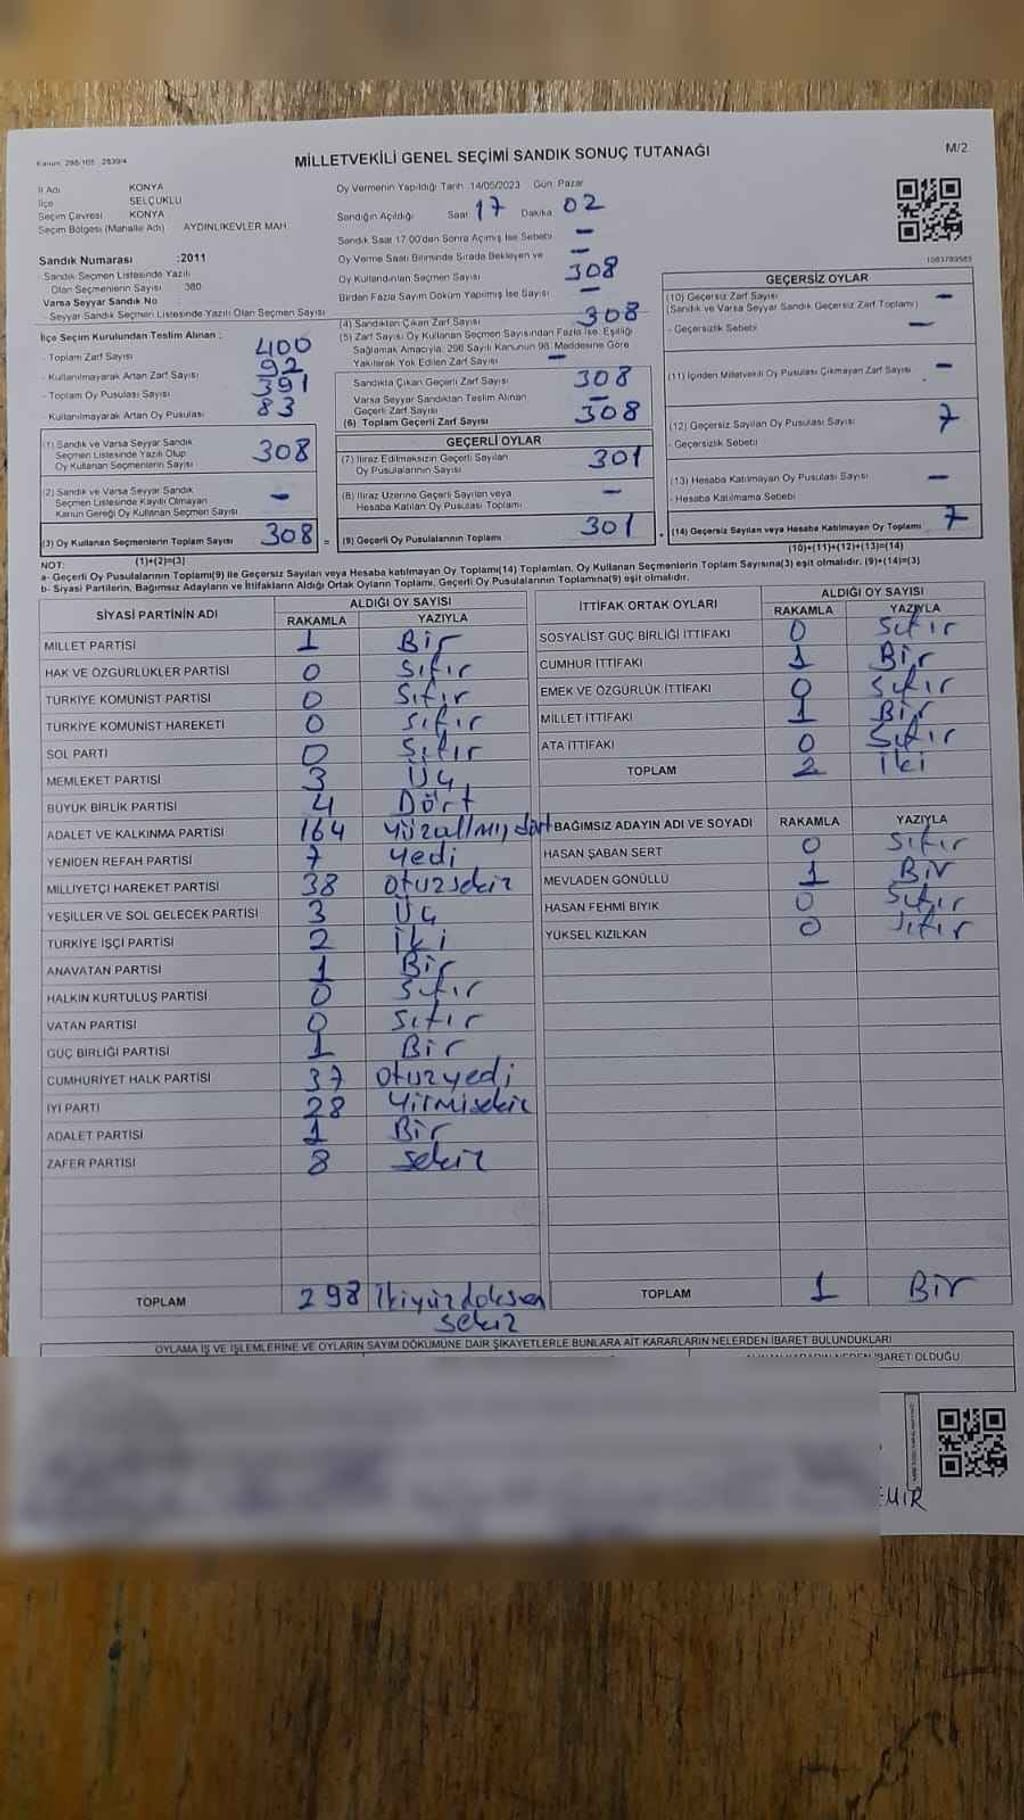 Kanun: 298/105 2839/4
MİLLETVEKİLİ GENEL SEÇİMİ SANDIK SONUÇ TUTANAĞI
M/2
İl Adı KONYA
İlçe SELÇUKLU
Seçim Çevresi KONYA
Seçim Bölgesi (Mahalle Adı) AYDINLIKEVLER MAH.
Sandık Numarası :2011
- Sandık Seçmen Listesinde Yazılı
Olan Seçmenlerin Sayısı 380
Varsa Seyyar Sandık No
- Seyyar Sandık Seçmen Listesinde Yazılı Olan Seçmen Sayısı
İlçe Seçim Kurulundan Teslim Alınan :
- Toplam Zarf Sayısı 400
- Kullanılmayarak Artan Zarf Sayısı 92
- Toplam Oy Pusulası Sayısı 391
- Kullanılmayarak Artan Oy Pusulası 83
(1) Sandık ve Varsa Seyyar Sandık
Seçmen Listesinde Yazılı Olup
Oy Kullanan Seçmenlerin Sayısı 308
(2) Sandık ve Varsa Seyyar Sandık
Seçmen Listesinde Kayıtlı Olmayan
Kanun Gereği Oy Kullanan Seçmen Sayısı -
(3) Oy Kullanan Seçmenlerin Toplam Sayısı 308 =
(1)+(2)=(3)
Oy Vermenin Yapıldığı Tarih :14/05/2023 Gün: Pazar
Sandığın Açıldığı Saat 17 Dakika 02
Sandık Saat 17.00'dan Sonra Açılmış İse Sebebi -
Oy Verme Saati Bitiminde Sırada Bekleyen ve -
Oy Kullandırılan Seçmen Sayısı 308
Birden Fazla Sayım Döküm Yapılmış İse Sayısı -
(4) Sandıktan Çıkan Zarf Sayısı 308
(5) Zarf Sayısı Oy Kullanan Seçmen Sayısından Fazla İse, Eşitliği
Sağlamak Amacıyla, 298 Sayılı Kanunun 98. Maddesine Göre
Yakılarak Yok Edilen Zarf Sayısı -
Sandıkta Çıkan Geçerli Zarf Sayısı 308
Varsa Seyyar Sandıktan Teslim Alınan
Geçerli Zarf Sayısı -
(6) Toplam Geçerli Zarf Sayısı 308
GEÇERLİ OYLAR
(7) İtiraz Edilmeksizin Geçerli Sayılan
Oy Pusulalarının Sayısı 301
(8) İtiraz Üzerine Geçerli Sayılan veya
Hesaba Katılan Oy Pusulası Toplamı -
(9) Geçerli Oy Pusulalarının Toplamı 301 +
1083789583
GEÇERSİZ OYLAR
(10) Geçersiz Zarf Sayısı
(Sandık ve Varsa Seyyar Sandık Geçersiz Zarf Toplamı) -
- Geçersizlik Sebebi -
(11) İçinden Milletvekili Oy Pusulası Çıkmayan Zarf Sayısı -
(12) Geçersiz Sayılan Oy Pusulası Sayısı 7
- Geçersizlik Sebebi
(13) Hesaba Katılmayan Oy Pusulası Sayısı -
- Hesaba Katılmama Sebebi
(14) Geçersiz Sayılan veya Hesaba Katılmayan Oy Toplamı 7
(10)+(11)+(12)+(13)=(14)
NOT:
a- Geçerli Oy Pusulalarının Toplamı(9) ile Geçersiz Sayılan veya Hesaba Katılmayan Oy Toplamı(14) Toplamları, Oy Kullanan Seçmenlerin Toplam Sayısına(3) eşit olmalıdır. (9)+(14)=(3)
b- Siyasi Partilerin, Bağımsız Adayların ve İttifakların Aldığı Ortak Oyların Toplamı, Geçerli Oy Pusulalarının Toplamına(9) eşit olmalıdır.
SİYASİ PARTİNİN ADI ALDIĞI OY SAYISI
RAKAMLA YAZIYLA
MİLLET PARTİSİ 1 Bir
HAK VE ÖZGÜRLÜKLER PARTİSİ 0 Sıfır
TÜRKİYE KOMÜNİST PARTİSİ 0 Sıfır
TÜRKİYE KOMÜNİST HAREKETİ 0 Sıfır
SOL PARTİ 0 Sıfır
MEMLEKET PARTİSİ 3 Üç
BÜYÜK BİRLİK PARTİSİ 4 Dört
ADALET VE KALKINMA PARTİSİ 164 Yüzatlmışdört
YENİDEN REFAH PARTİSİ 7 Yedi
MİLLİYETÇİ HAREKET PARTİSİ 38 otuzsekiz
YEŞİLLER VE SOL GELECEK PARTİSİ 3 Üç
TÜRKİYE İŞÇİ PARTİSİ 2 İki
ANAVATAN PARTİSİ 1 Bir
HALKIN KURTULUŞ PARTİSİ 0 Sıfır
VATAN PARTİSİ 0 Sıfır
GÜÇ BİRLİĞİ PARTİSİ 1 Bir
CUMHURİYET HALK PARTİSİ 37 otuzyedi
İYİ PARTİ 28 Yirmisekiz
ADALET PARTİSİ 1 Bir
ZAFER PARTİSİ 8 Sekiz
TOPLAM 298 İkiyüzdoksan
sekiz
İTTİFAK ORTAK OYLARI ALDIĞI OY SAYISI
RAKAMLA YAZIYLA
SOSYALİST GÜÇ BİRLİĞİ İTTİFAKI 0 Sıfır
CUMHUR İTTİFAKI 1 Bir
EMEK VE ÖZGÜRLÜK İTTİFAKI 0 Sıfır
MİLLET İTTİFAKI 1 Bir
ATA İTTİFAKI 0 Sıfır
TOPLAM 2 İki
BAĞIMSIZ ADAYIN ADI VE SOYADI RAKAMLA YAZIYLA
HASAN ŞABAN SERT 0 Sıfır
MEVLADEN GÖNÜLLÜ 1 Bir
HASAN FEHMİ BIYIK 0 Sıfır
YÜKSEL KIZILKAN 0 Sıfır
TOPLAM 1 Bir
OYLAMA İŞ VE İŞLEMLERİNE VE OYLARIN SAYIM DÖKÜMÜNE DAİR ŞİKAYETLERLE BUNLARA AİT KARARLARIN NELERDEN İBARET BULUNDUKLARI
İBARET OLDUĞU
EMİR